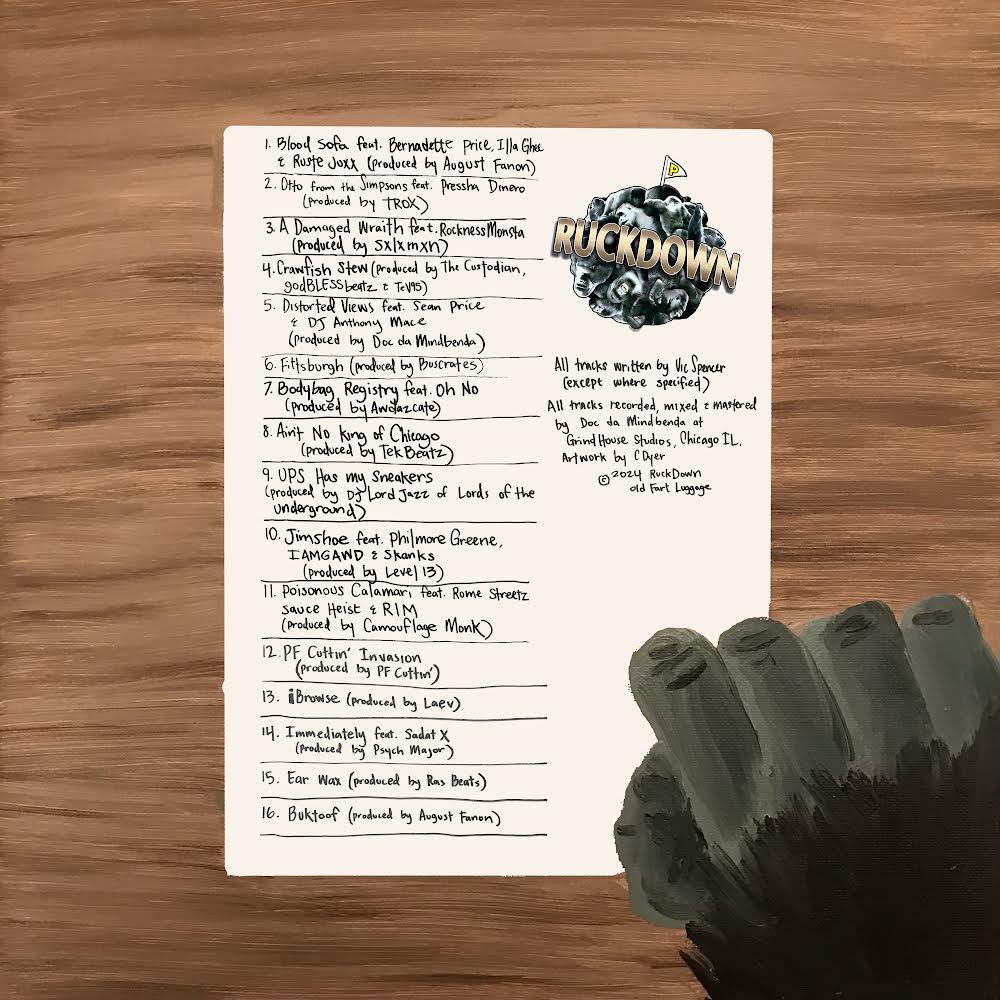 1. Blood Sofa feat. Bernadette Price, Illa Ghee
& Ruste Juxx (produced by August Fanon)
2. Otto from the Simpsons feat. Pressha Dinero
(produced by TROX)
3. A Damaged Wraith feat. RocknessMonsta
(produced by SxlxmXn)
4. Crawfish Stew (produced by The Custodian,
godBLESSbeatz & Tev95)
5. Distorted Views feat. Sean Price
& DJ Anthony Mace
(produced by Doc da Mindbenda)
6. Fittsburgh (produced by Buscrates)
7. Bodybag Registry feat. Oh No
(produced by Awdazcate)
8. Ain't No King of Chicago
(produced by TekBeatz)
9. UPS Has my Sneakers
(produced by DJ Lord Jazz of Lords of the
underground)
10. Jimshoe feat. Philmore Greene,
IAMGAWD & Skanks
(produced by Level 13)
11. Poisonous Calamari feat. Rome Streetz
Sauce Heist & RIM
(produced by Camouflage Monk)
12. PF Cuttin' Invasion
(produced by PF Cuttin')
13. iBrowse (produced by Laev)
14. Immediately feat. Sadat X
(produced by Psych Major)
15. Ear Wax (produced by Ras Beats)
16. Buktoof (produced by August Fanon)
P
RUCKDOWN
All tracks written by Vic Spencer
(except where specified)
All tracks recorded, mixed & mastered
by Doc da Mindbenda at
GrindHouse Studios, Chicago IL.
Artwork by CDyer
©2024 RuckDown
old Fart Luggage